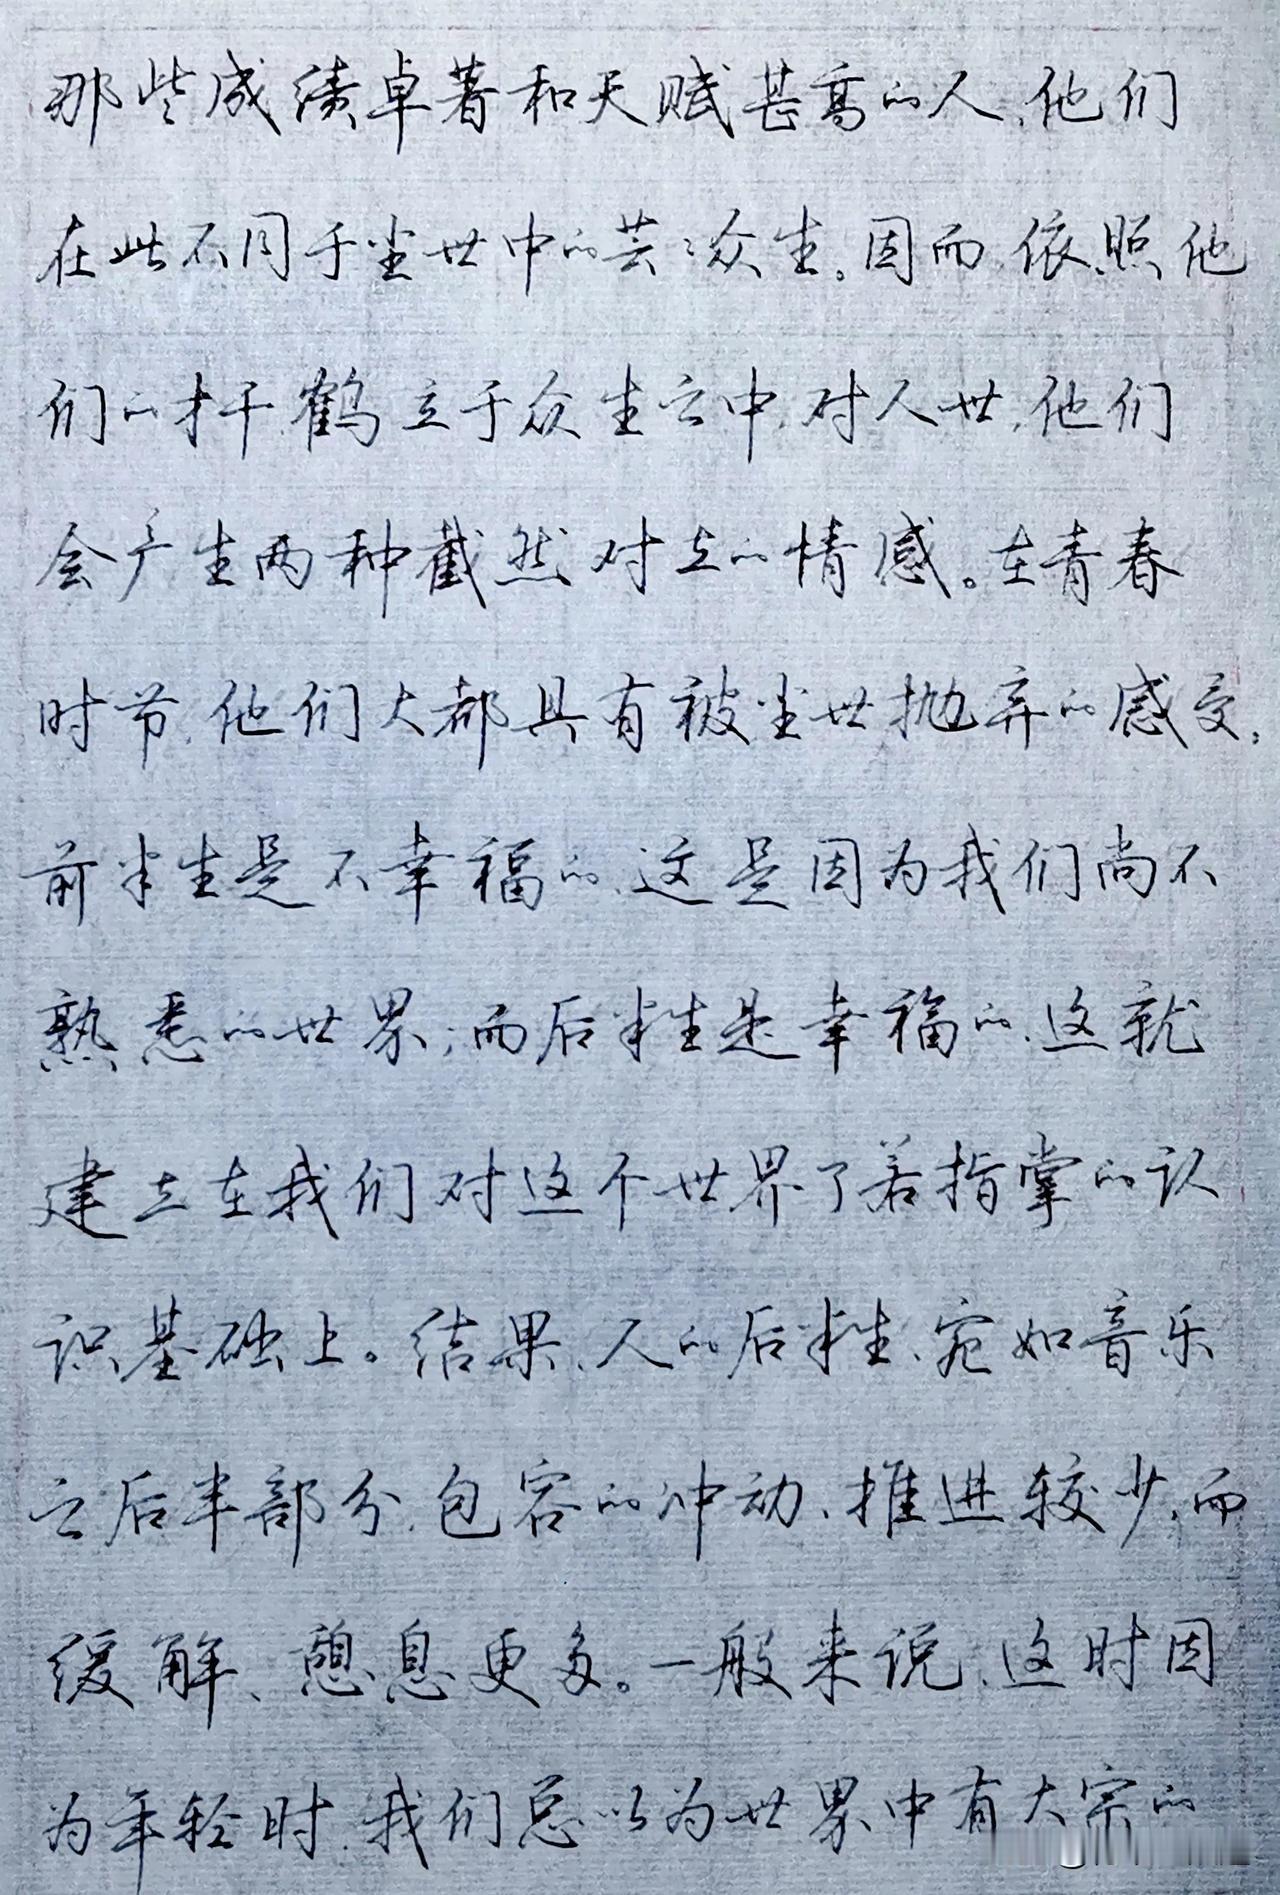 那些成绩卓著和天赋甚高的人,他们
在此不同于尘世中的芸々众生。因而,依照他
们的才干,鹤立于众生之中,对人世,他们
会产生两种截然对立的情感。在青春
时节,他们大都具有被尘世抛弃的感受;
前半生是不幸福的,这是因为我们尚不
熟悉的世界;而后半生是幸福的,这就
建立在我们对这个世界了若指掌的认
识基础上。结果,人的后半生,宛如音乐
之后半部分,包容的冲动、推进较少,而
缓解、憩息更多。一般来说,这时因
为年轻时,我们总以为世界中有大宗的